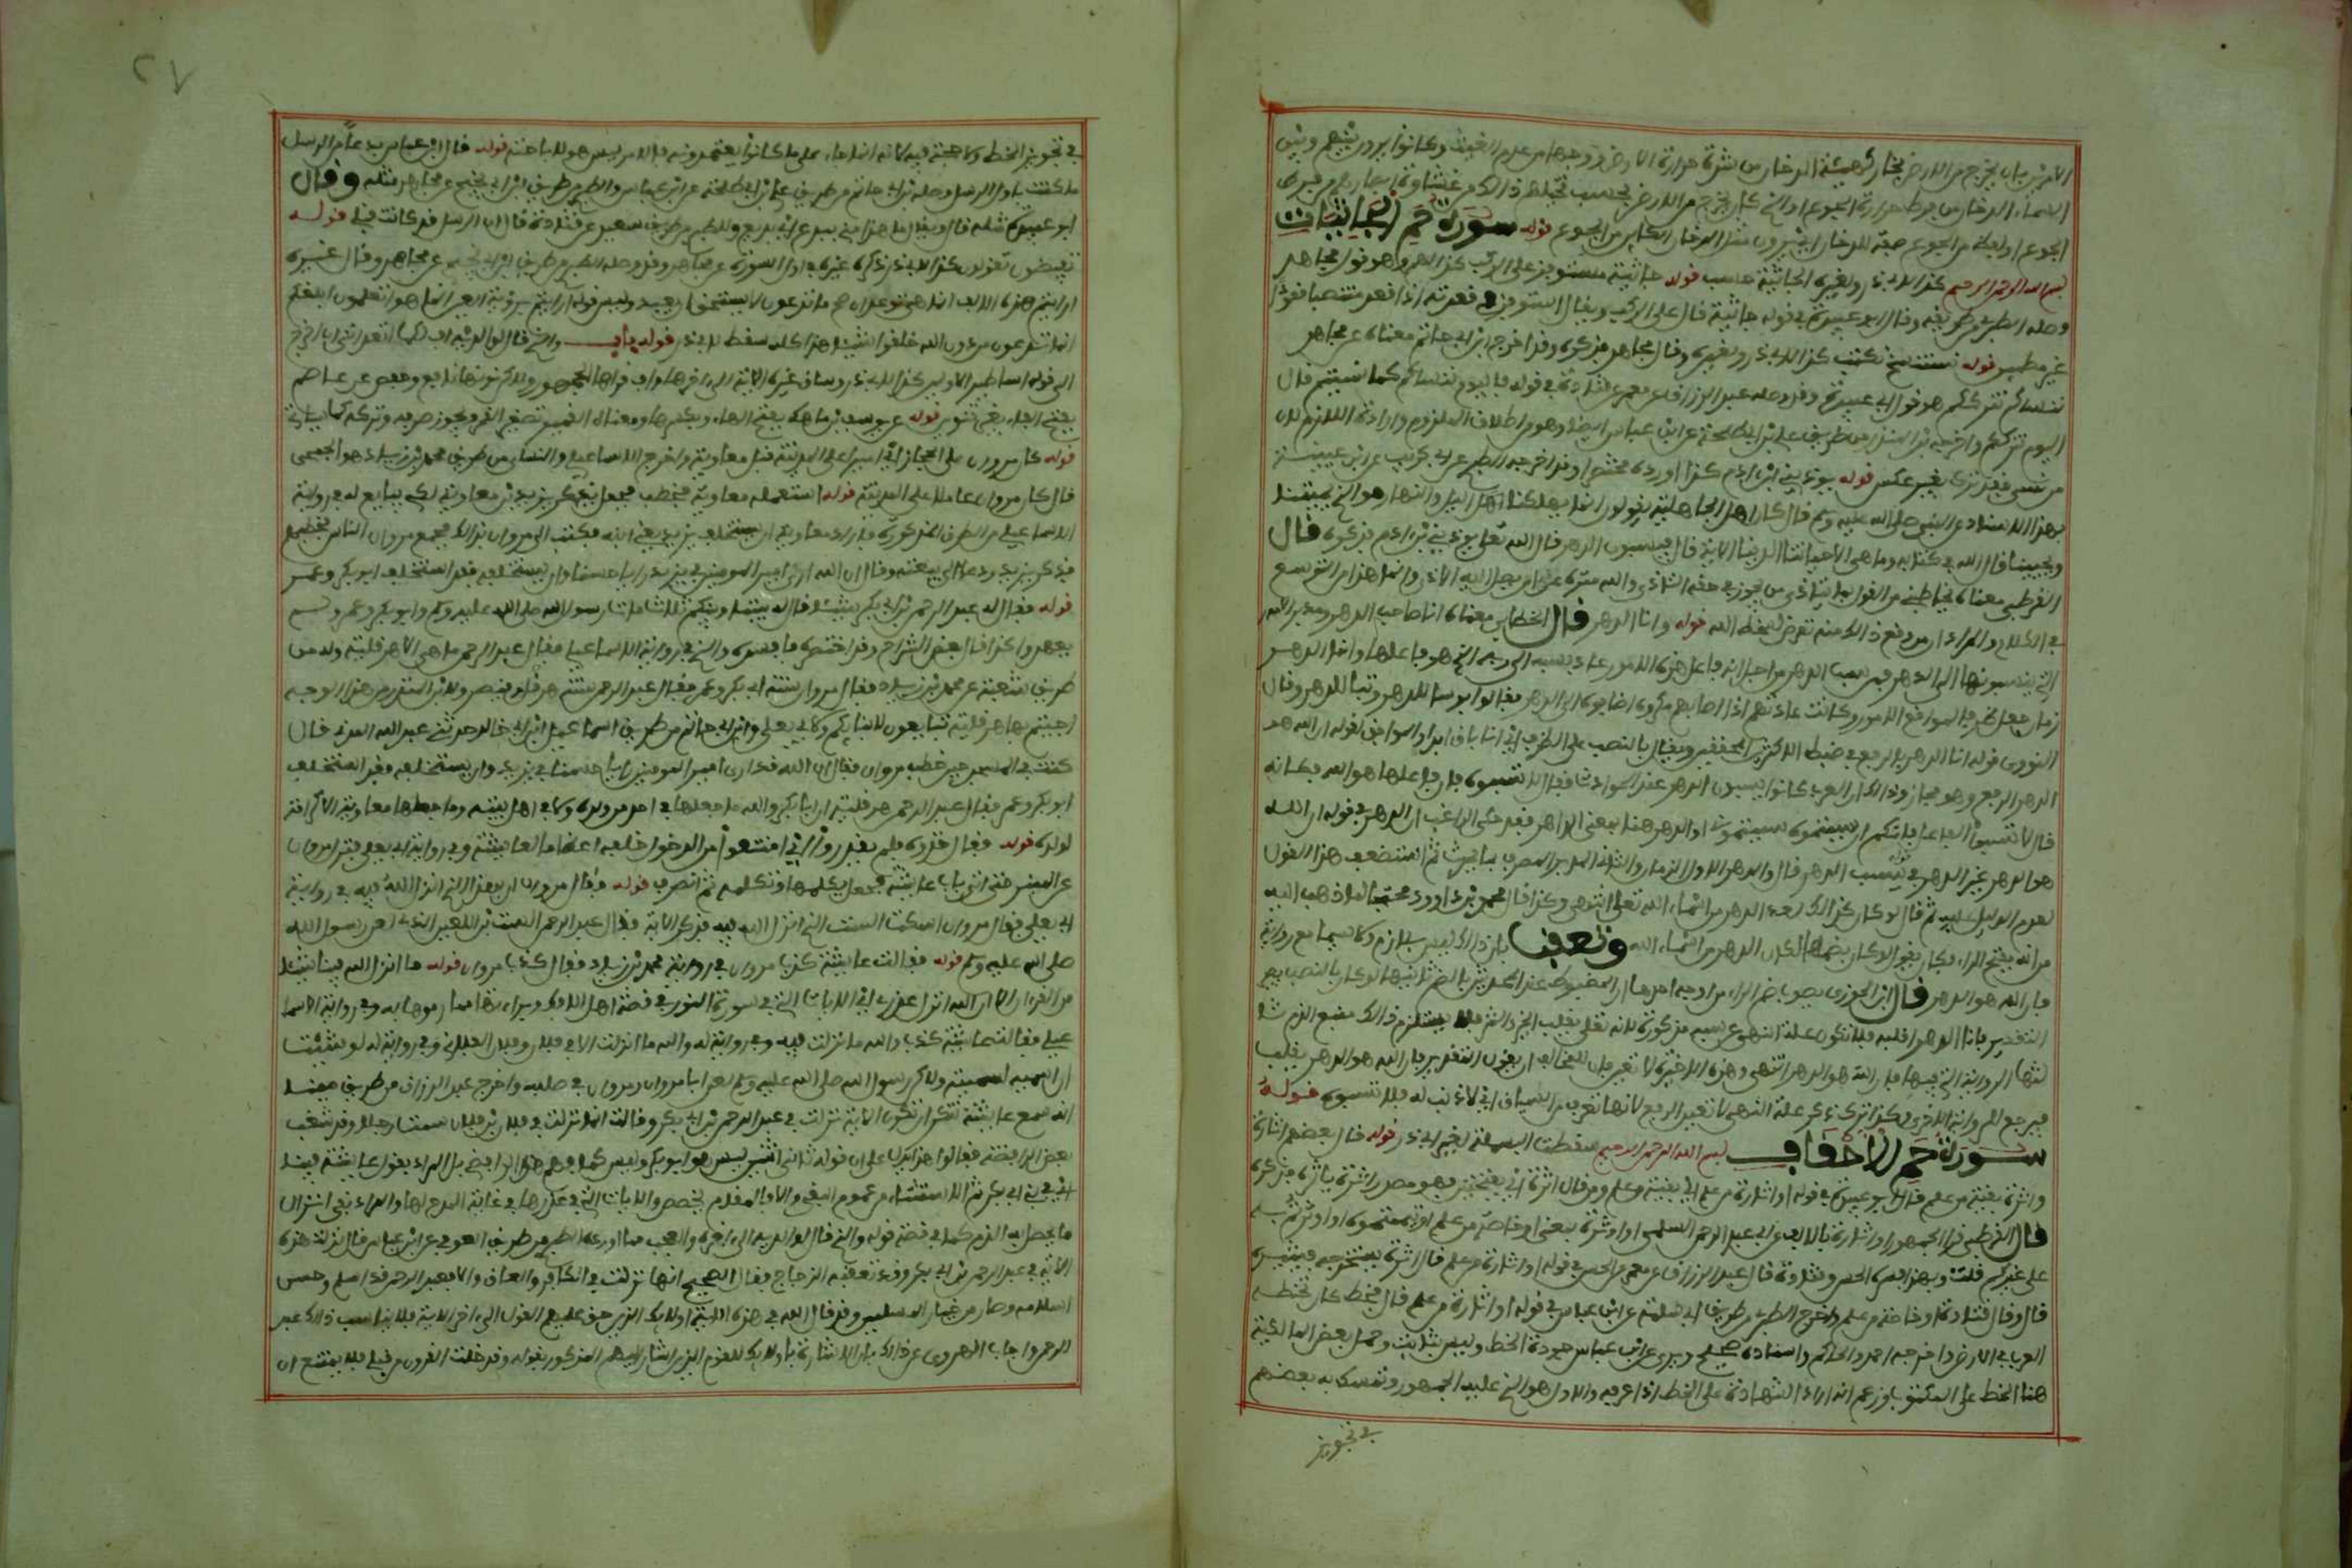 الامرين بان يخرج من الارض بخار كهيئة الدخان من شدة حرارة الارض ووهجها من عدم الغيث وكانوا يرون بينهم وبين
السماء الدخان من فرط حرارة الجوع او الذي كان يخرج من الارض بحسب تخيلهم ذلك من غشاوة ابصارهم من فرط
الجوع او لفظ من الجوع صفة للدخان اي يرون مثل الدخان الكاين من الجوع قوله سورة حم الجاثية
بسم الله الرحمن الرحيم كذا لابي ذر ولغيره الجاثية حسب قوله جاثية مستوفزين على الركب كذا لهم وهو قول مجاهد
وصله الطبري من طريقه وقال ابو عبيدة في قوله جاثية قال على الركب ويقال استوفز في قعدته اذا قعد منتصبا قعودا
غير مطمين قوله نستنسخ نكتب كذا لابي ذر ولغيره وقال مجاهد فذكره وقد اخرج ابن ابي حاتم معناه عن مجاهد
ننساكم نترككم هو قول ابي عبيدة وقد وصله عبد الرزاق عن معمر عن قتادة في قوله فاليوم ننساكم كما نسيتم قال
اليوم نترككم واخرجه ابن المنذر من طريق علي بن ابي طلحة عن ابن عباس ايضا وهو من اطلاق الملزوم وارادة اللازم لان
من نسي فقد ترك بغير عكس قوله يوذيني ابن ادم كذا اورده مختصرا وقد اخرجه الطبري عن ابي كريب عن ابن عيينة
بهذا الاسناد عن النبي صلى الله عليه وسلم قال كان اهل الجاهلية يقولون انما يهلكنا الليل والنهار هو الذي يميتنا
ويحيينا فقال الله في كتابه وما هي الا حياتنا الدنيا الاية قال فيسبون الدهر قال الله تعالى يوذيني ابن ادم فذكره قال
القرطبي معناه يخاطبني من القول بما يتاذى من يجوز في حقه التاذي والله منزه عن ان يصل اليه الاذى وانما هذا من التوسع
في الكلام والمراد ان من وقع ذلك منه تعرض لسخط الله قوله وانا الدهر قال الخطابي معناه انا صاحب الدهر ومدبر الامور
التي ينسبونها الى الدهر فمن سب الدهر من اجل انه فاعل هذه الامور عاد سبه الى ربه الذي هو فاعلها وانما الدهر
زمان جعل ظرفا لمواقع الامور وكانت عادتهم اذا اصابهم مكروه اضافوه الى الدهر فقالوا بوسا للدهر وتبا للدهر وقال
النووي قوله انا الدهر بالرفع في ضبط الاكثرين والمحققين ويقال بالنصب على الظرف اي انا باق ابدا والموافق لقوله ان الله هو
الدهر الرفع وهو مجاز وذلك ان العرب كانوا يسبون الدهر عند الحوادث فقال لا تسبوه فان فاعلها هو الله فكانه
قال لا تسبوا الفاعل فانكم ان سببتموه سببتموني او الدهر هنا بمعنى الداهر فقد حكى الراغب ان الدهر في قوله ان الله
هو الدهر غير الدهر في يسب الدهر قال والدهر الاول الزمان والثاني المدبر المصرف لما يحدث ثم استضعف هذا القول
لعدم الدليل عليه ثم قال لو كان كذلك لعد الدهر من اسماء الله تعالى انتهى وكذا قال محمد بن داود محتجا لما ذهب اليه
من انه بفتح الراء فكان يقول لو كان بضمها لكان الدهر من اسماء الله وتعقب بان ذلك ليس بلازم ولا سيما مع روايته
فان الله هو الدهر قال ابن الجوزي يصوب ضم الراء من اوجه احدها ان المضبوط عند المحدثين بالضم ثانيها لو كان بالنصب يصير
التقدير فانا الدهر اقلبه فلا تكون علة النهي عن سبه مذكورة لانه تعالى يقلب الخير والشر فلا يستلزم ذلك منع الذم ثا
لثها الرواية التي فيها فان الله هو الدهر انتهى وهذه الاخيرة لا تعين لان للمخالف ان يقول التقدير فان الله هو الدهر يقلب
فيرجع للرواية الاخرى وكذا ترك ذكر علة النهي لا تعين الرفع لانها تعرف من السياق اي لا ذنب له فلا تسبوه قوله
سورة حم الاحقاف بسم الله الرحمن الرحيم سقطت البسملة لغير ابي ذر قوله قال بعضهم اثارة
واثرة بقية من علم قال ابو عبيدة في قوله او اثارة من علم اي بقية من علم ومن قال اثرة اي بفتحتين فهو مصدر اثره ياثره فذكره
قال الطبري قرا الجمهور او اثارة بالالف وعن ابي عبد الرحمن السلمي او اثرة بمعنى او خاصة من علم اوتيتموه او اوثرتم به
على غيركم قلت وبهذا فسره الحسن وقتادة قال عبد الرزاق عن معمر عن الحسن في قوله او اثارة من علم قال اثرة شيء يستخرجه فيثيره
قال وقال قتادة او خاصة من علم واخرج الطبري من طريق ابي سلمة عن ابن عباس في قوله او اثارة من علم قال خط كانت تخطه
العرب في الارض واخرجه احمد والحاكم واسناده صحيح ويروى عن ابن عباس جودة الخط وليس بثابت وحمل بعض المالكية
هذا الخط على المكتوب وزعم انه اراد الشهادة على الخط اذا عرفه والاول هو الذي عليه الجمهور وتمسك به بعضهم
في تجويز
٢٧
في تجويز الخط ولا حجة فيه لانه انما جاء على ما كانوا يعتمدونه فالامر ليس هو لاباحته قوله قال ابن عباس بدعا من الرسل
ما كنت باول الرسل وصله ابن ابي حاتم من طريق علي بن ابي طلحة عن ابن عباس وللطبري من طريق ابن ابي نجيح عن مجاهد مثله وقال
ابو عبيدة مثله قال ويقال ما هذا مني ببدع اي ببديع وللطبري من طريق سعيد عن قتادة قال ان الرسل قد كانت قبلي قوله
تفيضون تقولون كذا لابي ذر وذكره غيره في اول السورة عن مجاهد وقد وصله الطبري من طريق ابن ابي نجيح عن مجاهد وقال غيره
ارايتم هذه الالف انما هي توعد ان صح ما تدعون لا يستحق ان يعبد وليس قوله ارايتم برؤية العين انما هو اتعلمون ابلغكم
ان ما تدعون من دون الله خلقوا شيئا هذا كله سقط لابي ذر قوله باب والذي قال لوالديه اف لكما اتعدانني ان اخرج
الى قوله اساطير الاولين كذا لابي ذر وساق غيره الاية الى اخرها واف قراها الجمهور بالكسر لكن نونها نافع وحفص عن عاصم
بفتح الفاء بغير تنوين قوله عن يوسف بن ماهك بفتح الهاء وبكسرها ومعناه القمير تصغير القمر ويجوز صرفه وتركه كما سياتي
قوله كان مروان على الحجاز اي اميرا على المدينة من قبل معاوية واخرج الاسماعيلي والنسائي من طريق محمد بن زياد هو الجمحي
قال كان مروان عاملا على المدينة قوله استعمله معاوية فخطب فجعل يذكر يزيد بن معاوية لكي يبايع له في رواية
الاسماعيلي من الطريق المذكورة فاراد معاوية ان يستخلف يزيد يعني ابنه فكتب الى مروان بذلك فجمع مروان الناس فخطبهم
فذكر يزيد ودعا الى بيعته وقال ان الله ارى امير المومنين في يزيد رايا حسنا وان يستخلفه فقد استخلف ابو بكر وعمر
قوله فقال له عبد الرحمن بن ابي بكر شيئا قال له بيننا وبينكم ثلاث مات رسول الله صلى الله عليه وسلم وابو بكر وعمر ولم
يعهدوا كذا قال بعض الشراح وقد اختصره فافسده والذي في رواية الاسماعيلي فقال عبد الرحمن ما هي الا هرقلية وله من
طريق شعبة عن محمد بن زياد فقال مروان سنة ابي بكر وعمر فقال عبد الرحمن سنة هرقل وقيصر ولابن المنذر من هذا الوجه
اجئتم بها هرقلية تبايعون لابنائكم ولابي يعلى وابن ابي حاتم من طريق اسماعيل بن ابي خالد حدثني عبد الله المدني قال
كنت في المسجد حين خطب مروان فقال ان الله قد ارى امير المومنين رايا حسنا في يزيد وان يستخلفه فقد استخلف
ابو بكر وعمر فقال عبد الرحمن هرقلية ان ابا بكر والله ما جعلها في احد من ولده ولا في اهل بيته وما جعلها معاوية الا كرامة
لولده قوله فقال خذوه فلم يقدروا اي امتنعوا من الدخول خلفه اعظاما لعائشة وفي رواية ابي يعلى فنزل مروان
عن المنبر حتى اتى باب عائشة فجعل يكلمها وتكلمه ثم انصرف قوله فقال مروان ان هذا الذي انزل الله فيه في رواية
ابي يعلى فقال مروان اسكت الست الذي انزل الله فيه فذكر الاية فقال عبد الرحمن الست ابن اللعين الذي لعن رسول الله
صلى الله عليه وسلم قوله فقالت عائشة كذب مروان في رواية محمد بن زياد فقال كذب مروان قوله ما انزل الله فينا شيئا
من القران الا ان الله انزل عذري اي الايات التي في سورة النور في قصة اهل الافك وبراءتها مما رموها به وفي رواية الاسما
عيلي فقالت عائشة كذب والله ما نزلت فيه وفي رواية له والله ما انزلت الا في فلان بن فلان الفلاني وفي رواية له لو شئت
ان اسميه لسميته ولكن رسول الله صلى الله عليه وسلم لعن ابا مروان ومروان في صلبه واخرج عبد الرزاق من طريق مينا
انه سمع عائشة تنكر ان تكون الاية نزلت في عبد الرحمن بن ابي بكر وقالت انما نزلت في فلان بن فلان سمت رجلا وقد شغب
بعض الرافضة فقالوا هذا يدل على ان قوله ثاني اثنين ليس هو ابو بكر وليس كما فهم هذا الرافضي بل المراد بقول عائشة فينا
اي في بني ابي بكر ثم الاستثناء من عموم النفي والا فالمقام يخصص والايات التي في عذرها في غاية المدح لها والمراد نفي انزال
ما يحصل به الذم كما في قصة قوله والذي قال لوالديه الى اخره والعجب مما اورده الطبري من طريق العوفي عن ابن عباس قال نزلت هذه
الاية في عبد الرحمن بن ابي بكر وقد تعقبه الزجاج فقال الصحيح انها نزلت في الكافر العاق والا فعبد الرحمن قد اسلم وحسن
اسلامه وصار من خيار المسلمين وقد قال الله في هذه الاية اولئك الذين حق عليهم القول الى اخر الاية فلا يناسب ذلك عبد
الرحمن واجاب المهدوي عن ذلك بان الاشارة باولئك للقوم الذين اشار اليهم المذكور بقوله وقد خلت القرون من قبلي فلا يمتنع ان